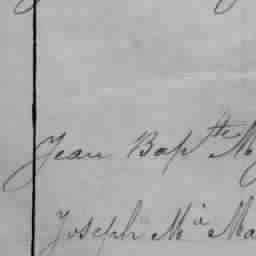 Jean Bapᵗᵉ M
Joseph Mᵃ Ma